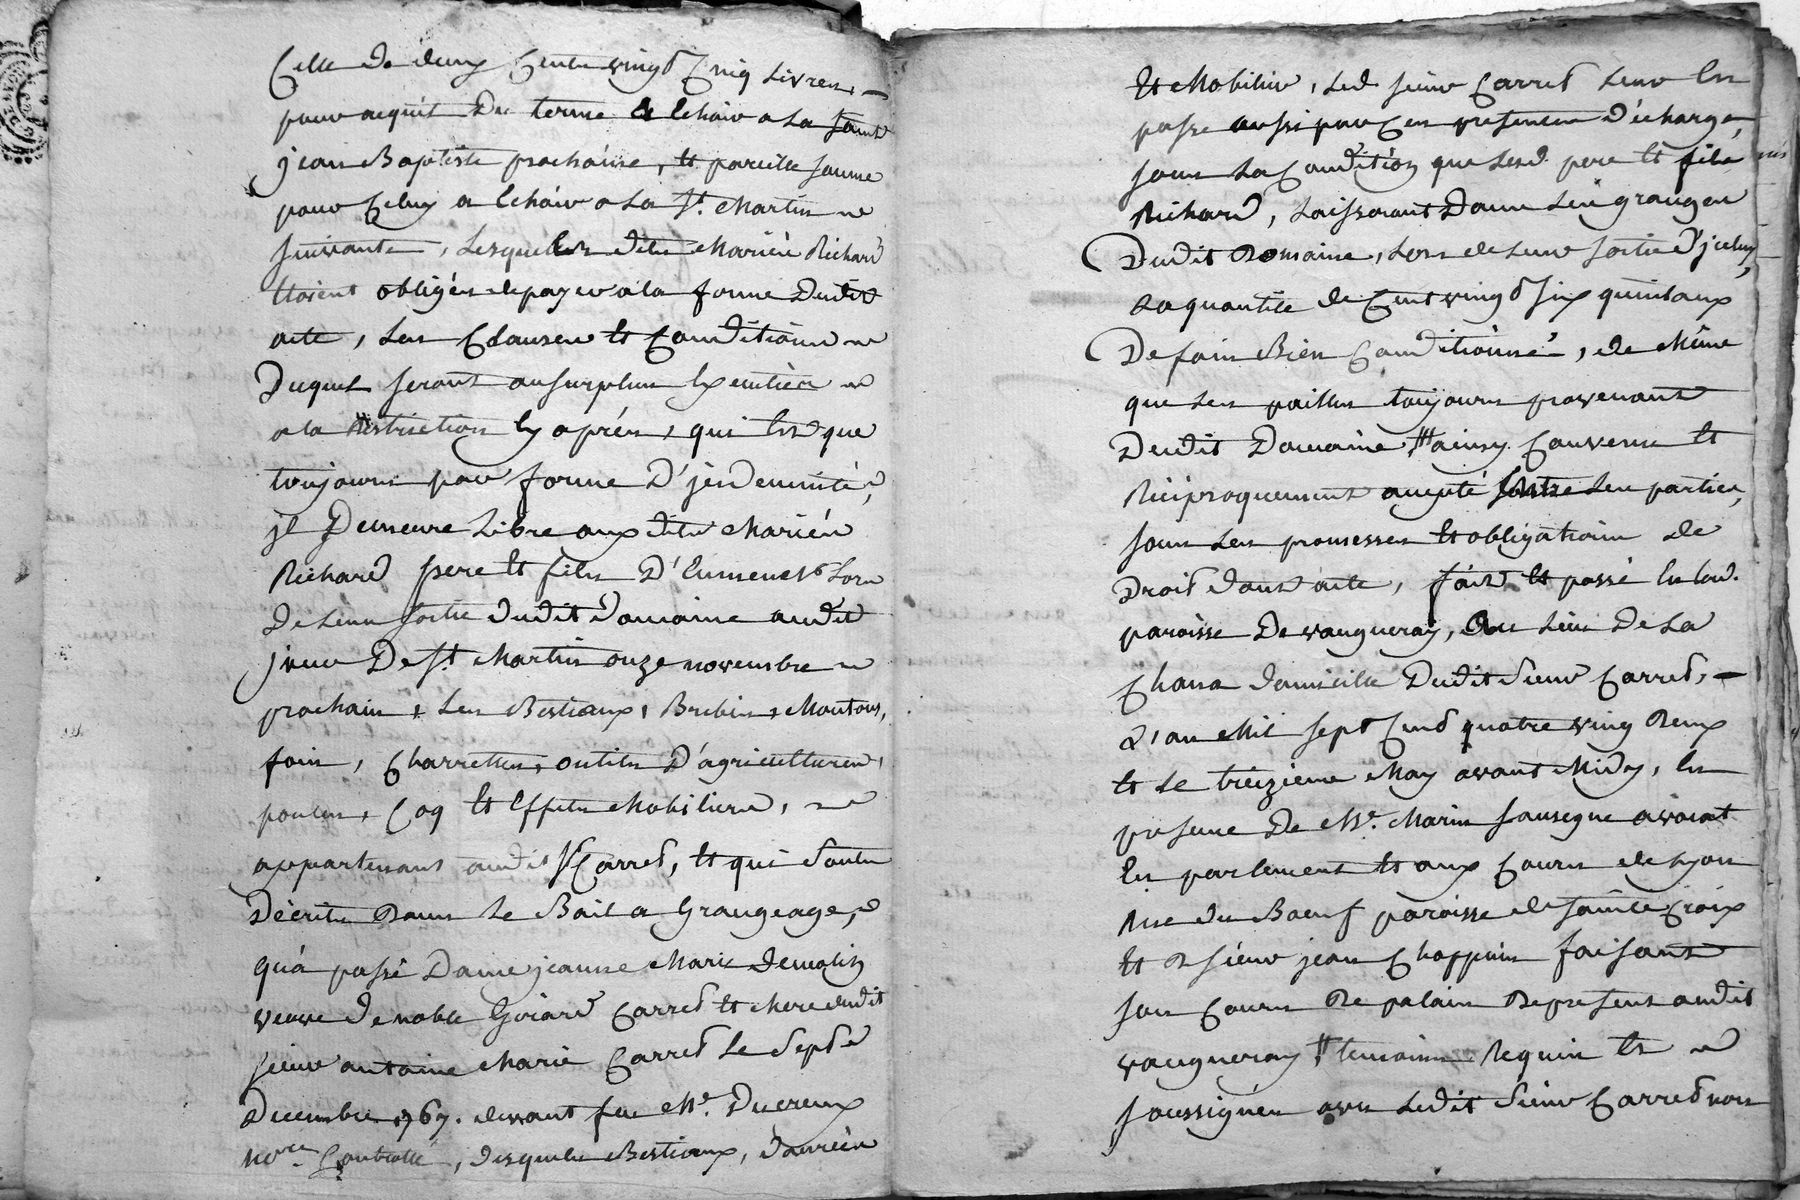 Celle de deux Cents vingt Cinq Livres, –
pour acquit Du terme Echoir a La saint
jean Baptiste prochaine, et pareille somme
pour Celuy a Echoir a La St. Martin
suivante, Lesquelles dits Mariés Richard
étoient obligés de payer a la forme Dudit
acte, Les Clauses et Conditions
Duquel seront au surplus Executées
a la Restriction Cy après, qui Est que
toujours par forme D'jndemnité,
jl Demeure Libre aux dits Mariés
Richard pere et fils D'Emmener Lors
De Leur sortie dudit Domaine audit
jour De St Martin onze novembre
prochain, Les Bestiaux, Brebis, Moutons,
foin, Charrettes, outils D'agricultures,
poules, Coq et Effets Mobiliers,
appartenant audit Sr Carret, et qui Sont
Décrits Dans Le Bail a Grangeage,
qu'a passé Dame jeanne Marie demolin
veuve De noble Girard Carret et Mere dudit
sieur antoine Marie Carret Le Sept
Decembre 1767. devant feu Me. Ducreux
Nore. Controllé, desquels Bestiaux, danrées
Et Mobilier, Led sieur Carret Leur En
passe aussi par Ces presentes D'écharge,
sous La Condition que Lesd. pere et fils
Richard, Laisseront Dans Les granges
Dudit Domaine, Lors de Leur sortie D'jceluy
La quantité de Cent vingt six quintaux
De foin Bien Conditionné, de Même
que Les pailles toujours provenant
Dudit Domaine, ainsy Convenu et
Réciproquement accepté Entre Les parties,
sous Les promesses et obligations de
Droit dont acte, fait et passé En lad.
paroisse De vaugneray, Au Lieu De La
Chana domicille Dudit Sieur Carret, –
L'an Mil sept Cent quatre vingt Deux
et Le treizieme May avant Midy, En
presence De Me. Marin Sausegne avocat
En parlement et aux Cours de Lyon
Rue du Boeuf paroisse de sainte Croix
et Sr sieur jean Chappuis faisant
son Cours De palais De present audit
vaugneray temoins Requis et
soussignés avec Ledit Sieur Carret non